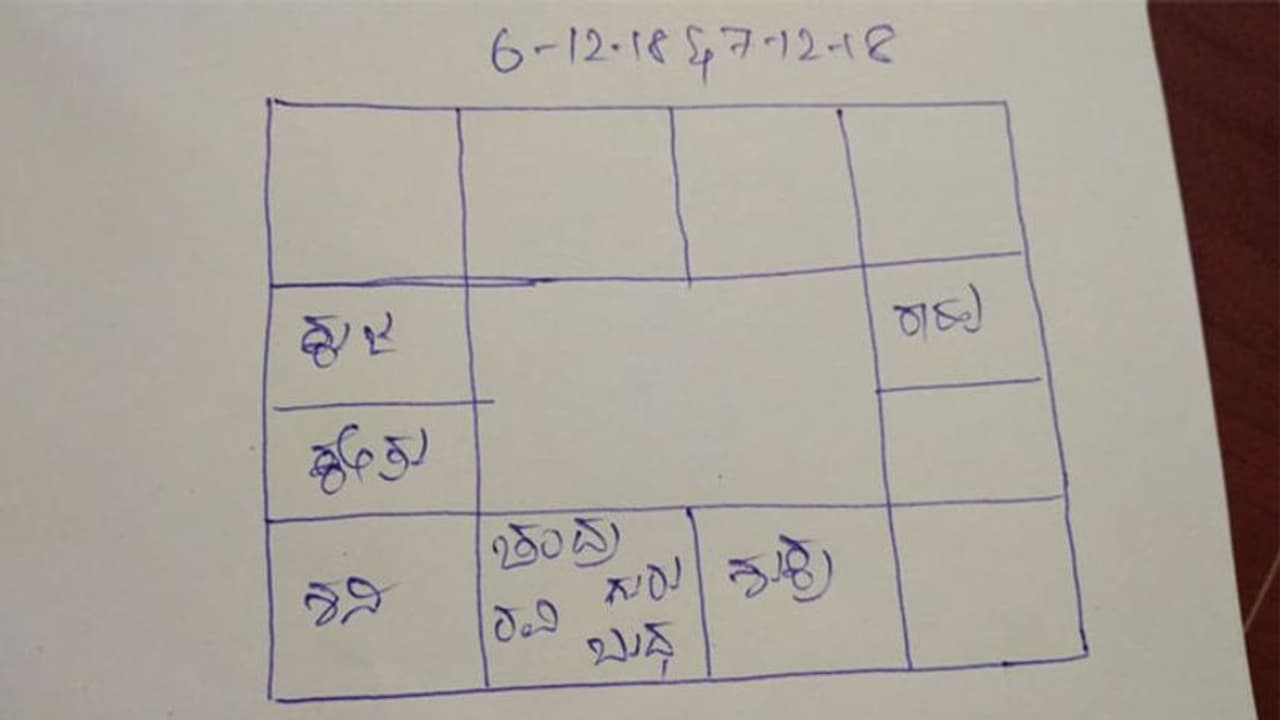 6-12-18 & 7-12-18
ಕುಜ
ರಾಹು
ಕೇತು
ಶನಿ
ಚಂದ್ರ
ಗುರು
ರವಿ
ಬುಧ
ಶುಕ್ರ